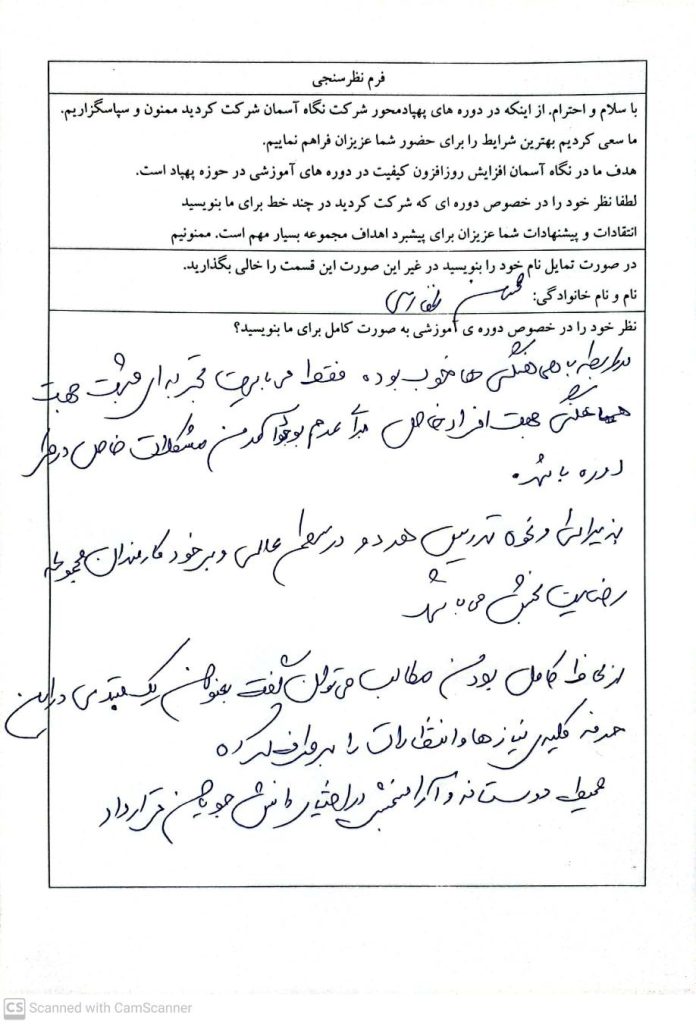 فرم نظرسنجی
با سلام و احترام. از اینکه در دوره های پهپادمحور شرکت نگاه آسمان شرکت کردید ممنون و سپاسگزاریم.
ما سعی کردیم بهترین شرایط را برای حضور شما عزیزان فراهم نماییم.
هدف ما در نگاه آسمان افزایش روزافزون کیفیت در دوره های آموزشی در حوزه پهپاد است.
لطفا نظر خود را در خصوص دوره ای که شرکت کردید در چند خط برای ما بنویسید
انتقادات و پیشنهادات شما عزیزان برای پیشبرد اهداف مجموعه بسیار مهم است. ممنونیم
در صورت تمایل نام خود را بنویسید در غیر این صورت این قسمت را خالی بگذارید.
نام و نام خانوادگی:
نظر خود را در خصوص دوره ی آموزشی به صورت کامل برای ما بنویسید؟
در رابطه با هماهنگی ها خوب بوده فقط می بایست تجربه ای مثبت جهت
هماهنگی جهت افراد خاص برای عدم بوجود آمدن مشکلات خاص در طول
دوره باشد.
پذیرائی و نحوه تدریس هر دو در سطح عالی و برخورد کارمندان مجموعه
رضایت بخش می باشد
از لحاظ کامل بودن مطالب می توان گفت بعنوان یک مبتدی در این
حرفه کلیه ی نیازها و انتظارات را برطرف کرده
محیط دوستانه و آرامبخشی در اختیار دانش جویان قرار داد
CS Scanned with CamScanner